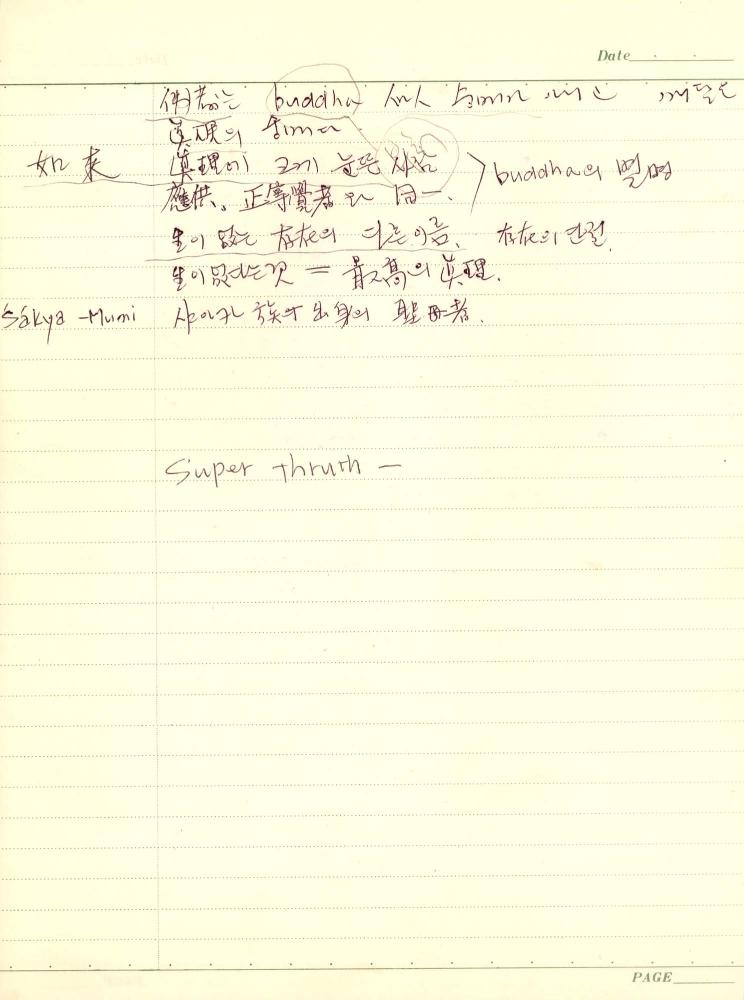 Date
buddha 깨달은
眞理의
如來 眞理에 크게 눈뜬 사람 buddha의 별명
應供, 正等覺者와 同一.
生이 없는 存在의 다른 이름, 存在의 단절.
生이 없다는것 = 最高의 眞理.
Sákya -Muni 샤아카 族 出身의 聖者.
Super thruth —
PAGE